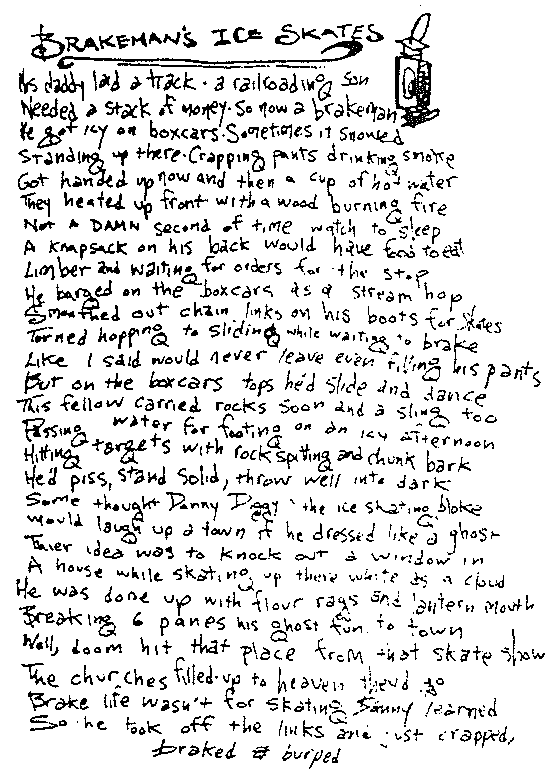 BRAKEMAN'S ICE SKATES
His daddy laid a track. a railroading son
Needed a stack of money. So now a brakeman
He got icy on boxcars. Sometimes it snowed
Standing up there. Crapping pants drinking smoke
Got handed up now and then a cup of hot water
They heated up front with a wood burning fire
Not a DAMN second of time watch to sleep
A knapsack on his back would have food to eat
Limber and waiting for orders for the stop
He barged on the boxcars as a stream hop
Smoothed out chain links on his boots for skates
Turned hopping to sliding while waiting to brake
Like I said would never leave even filling his pants
But on the boxcars tops he'd slide and dance
This fellow carried rocks soon and a sling too
Passing water for footing on an icy afternoon
Hitting targets with rock spiting and chunk bark
He'd piss, stand solid, throw well into dark
Some thought Danny Diggs the ice skating bloke
Would laugh up a town if he dressed like a ghost
Thier idea was to knock out a window in
A house while skating up there white as a cloud
He was done up with flour rags and lantern mouth
Breaking 6 panes his ghost fun to town
Well, doom hit that place from that skate show
The churches filled up to heaven they'd go
Brake life wasn't for skating Danny learned
So he took off the links and just crapped,
braked & burped